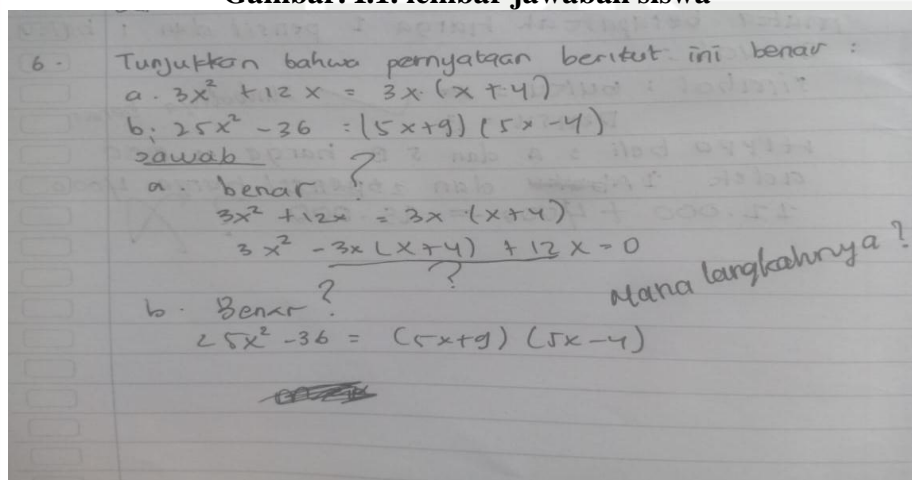 Gambar. 1.1. lembar jawaban siswa
6. Tunjukkan bahwa pernyataan berikut ini benar :
a. 3x² + 12x = 3x (x + 4)
b. 25x² - 36 = (5x+9) (5x-4)
Jawab
a. benar ?
3x² + 12x = 3x (x+4)
3x² - 3x (x+4) + 12x = 0
?
Mana langkahnya ?
b. Benar ?
25x² - 36 = (5x+9) (5x-4)